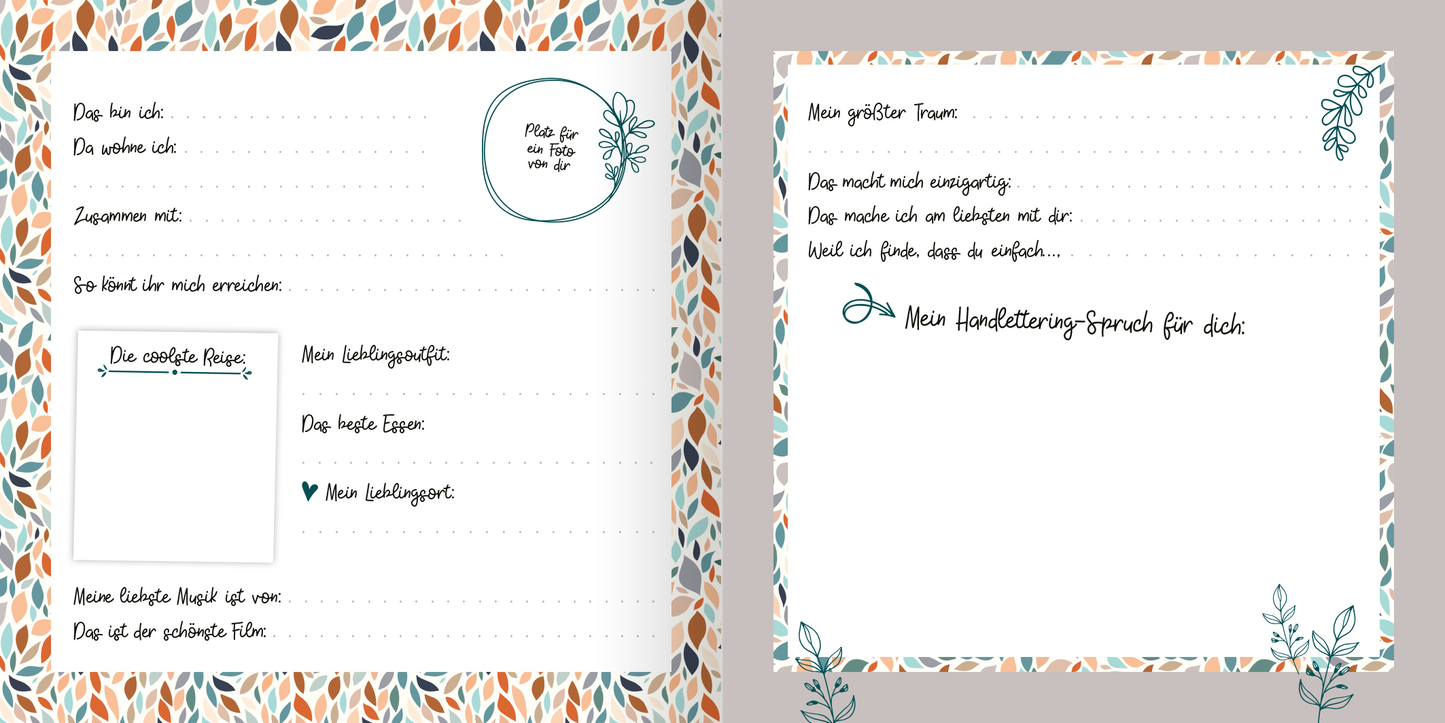 Das bin ich:
Da wohne ich:
Zusammen mit:
So könnt ihr mich erreichen:
Platz für
ein Foto
von dir
Die coolste Reise:
Mein Lieblingsoutfit:
Das beste Essen:
Mein Lieblingsort:
Meine liebste Musik ist von:
Das ist der schönste Film:
Mein größter Traum:
Das macht mich einzigartig:
Das mache ich am liebsten mit dir:
Weil ich finde, dass du einfach...,
Mein Handlettering-Spruch für dich: